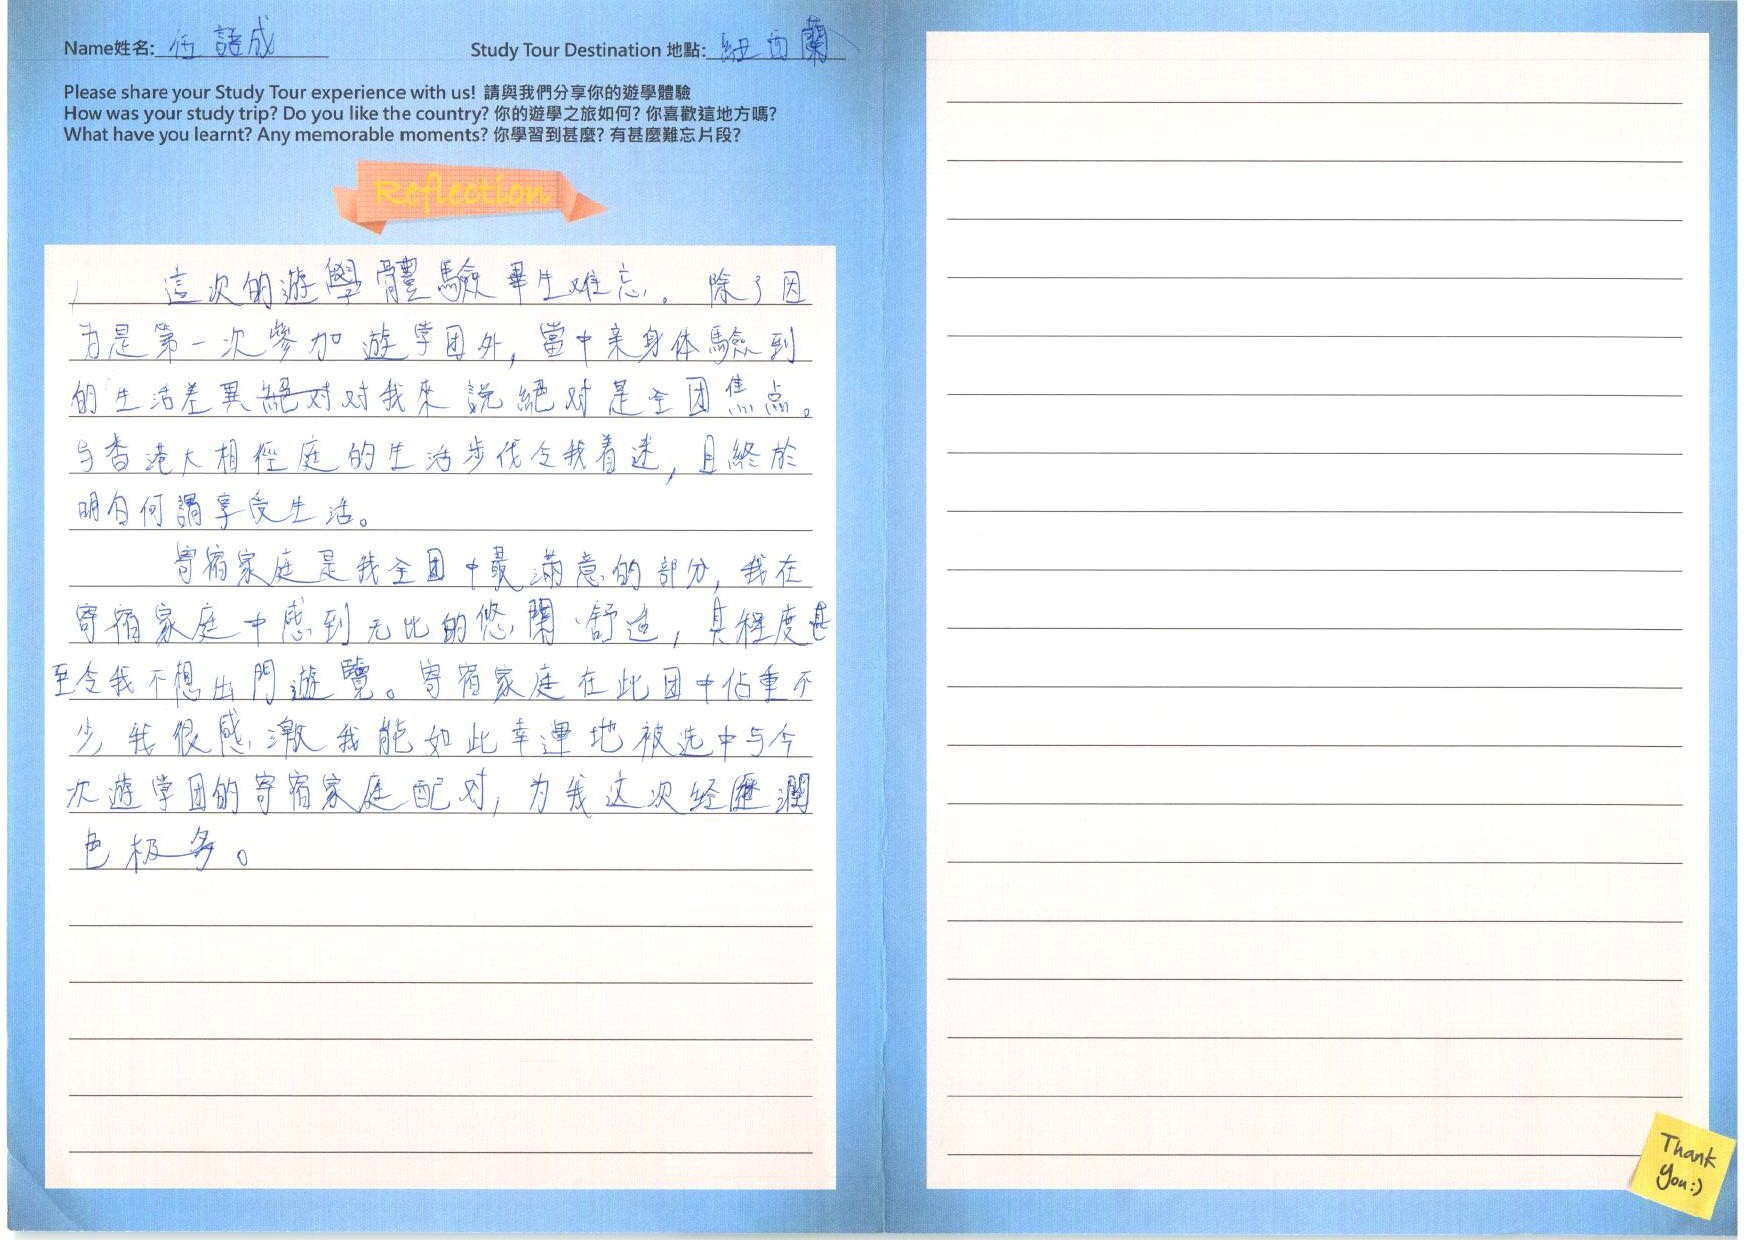 Name姓名: 伍語成
Study Tour Destination 地點: 紐西蘭
Please share your Study Tour experience with us! 請與我們分享你的遊學體驗
How was your study trip? Do you like the country? 你的遊學之旅如何? 你喜歡這地方嗎?
What have you learnt? Any memorable moments? 你學習到甚麼? 有甚麼難忘片段?
Reflection
這次的遊學體驗畢生难忘。除了因
为是第一次參加遊学团外,當中亲身体驗到
的生活差異絕对对我來說絕对是全团焦点。
与香港大相徑庭的生活步伐令我着迷,且終於
明白何謂享受生活。
寄宿家庭是我全团中最滿意的部分,我在
寄宿家庭中感到无比的悠閒、舒适,其程度甚
至令我不想出門遊覽。寄宿家庭在此团中佔重不
少我很感激我能如此幸運地被选中与今
次遊学团的寄宿家庭配对,为我这次经歷潤
色极多。
Thank
You:)